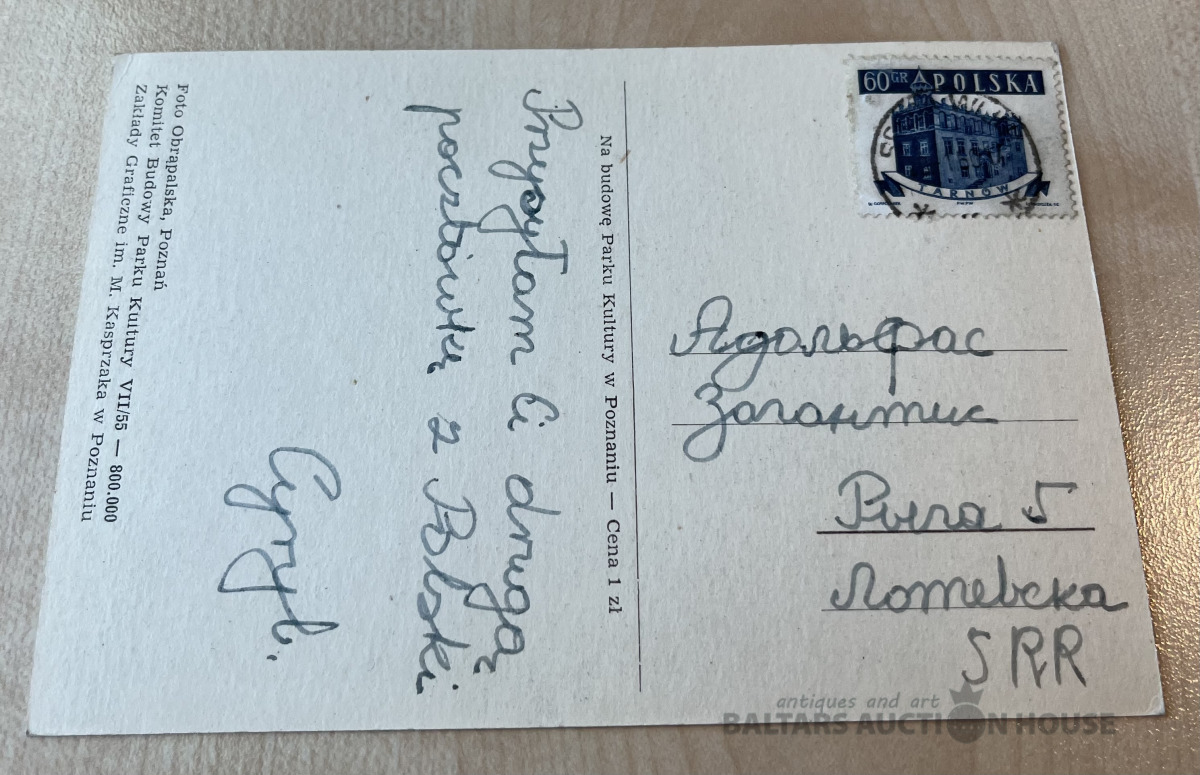 60 GR POLSKA
TARNÓW
Przysyłam Ci drugą
pocztówkę z Polski
Cyryl.
Na budowę Parku Kultury w Poznaniu — Cena 1 zł
Адольфас
Рига 5
SRR
Foto Obrąpalska, Poznań
Komitet Budowy Parku Kultury VII/55 — 800.000
Zakłady Graficzne im. M. Kasprzaka w Poznaniu
antiques and art
BALTARS AUCTION HOUSE